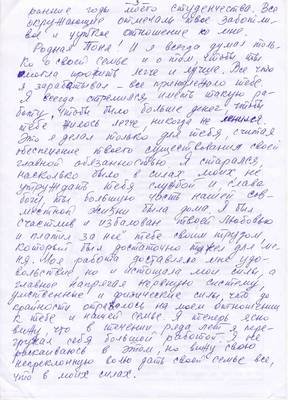 -3-
ранние годы нашего студенчества. Все
окружающие отмечали твое заботли-
вое и чуткое отношение ко мне.
Родная Поня! И я всегда думал толь-
ко о своей семье и о том, чтобы ты
могла прожить легче и лучше. Все что
я зарабатывал – все принадлежало тебе.
Я всегда стремился иметь такую ра-
боту, чтобы было больше денег, чтобы
тебе жилось легче, никогда не ленился.
Это я делал только для тебя, считая
обеспечение твоего существования своей
главной обязанностью. Я старался,
насколько было в силах моих не
утруждать тебя службой и, слава
богу, ты большую часть нашей сов-
местной жизни была дома. Я был
счастлив и избалован твоей любовью
и платил за неё тебе своим трудом,
который был достаточно тяжел для ме-
ня. Моя работа доставляла мне удо-
вольствие, но и истощала мои силы, а
главное напрягая нервную систему,
умственные и физические силы, что до
крайности отразилось на моем отношении
к тебе и нашей семье. Я теперь ясно
вижу, что в течении ряда лет я пере-
гружал себя большой работой. Я не
раскаиваюсь в этом, но вижу свою
непреклонную волю дать своей семье все,
что в моих силах.